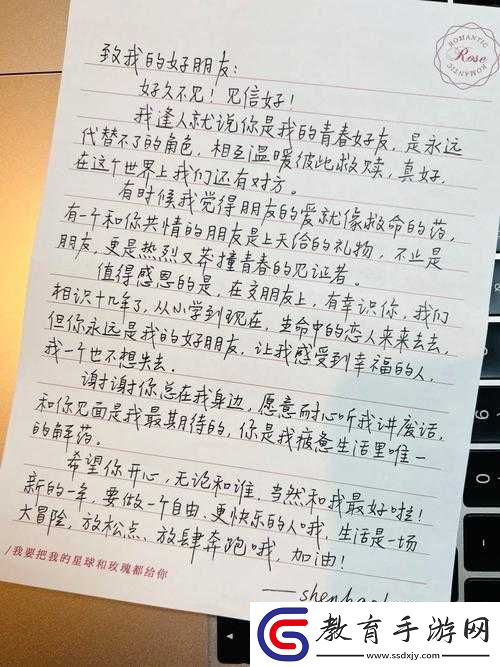 ROMANTIC
Rose
ROMANTIC
致我的好朋友：
好久不见！见信好！
我逢人就说你是我的青春好友，是永远
代替不了的角色，相互温暖彼此救赎，真好，
在这个世界上我们还有对方。
有时候我觉得朋友的爱就像救命的药，
有一个和你共情的朋友是上天给的礼物，不止是
朋友，更是热烈又莽撞青春的见证者。
值得感恩的是，在交朋友上，有幸识你，我们
相识十几年了，从小学到现在，生命中的恋人来来去去，
但你永远是我的好朋友，让我感受到幸福的人，
我一个也不想失去。
谢谢你总在我身边，愿意耐心听我讲废话，
和你见面是我最期待的，你是我疲惫生活里唯一
的解药。
希望你开心，无论和谁，当然和我最好啦！
新的一年，要做一个自由、更快乐的人哦，生活是一场
大冒险，放松点、放肆奔跑哦，加油！
/我要把我的星球和玫瑰都给你
教育手游网
www.ssdxjy.com